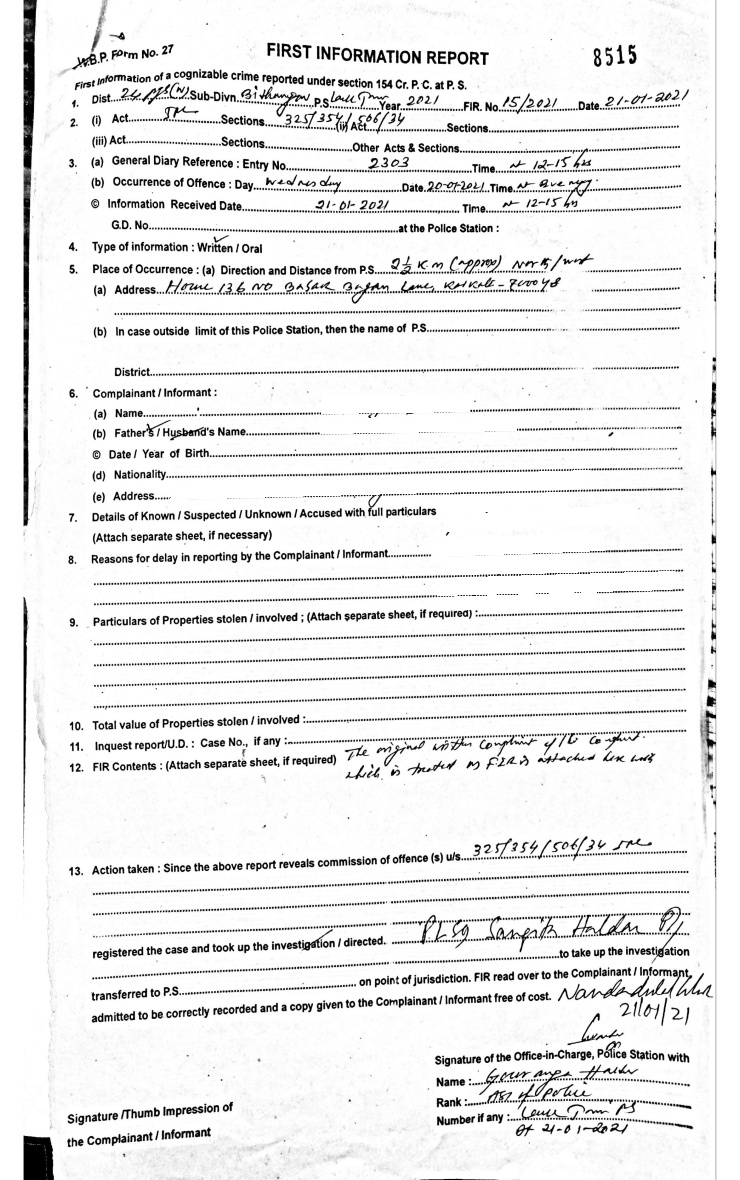 W.B.P. Form No. 27
FIRST INFORMATION REPORT
8515
First Information of a cognizable crime reported under section 154 Cr. P. C. at P. S.
1. Dist. 24 Sub-Divn. P.S. Year 2021 FIR. No. 15/2021 Date 21-01-2021
2. (i) Act Sections 325/354/506/34 (ii) Act Sections
(iii) Act Sections Other Acts & Sections
3. (a) General Diary Reference : Entry No. 2303 Time 12-15 hrs
(b) Occurrence of Offence : Day Wednesday Date 20-01-2021 Time
© Information Received Date 21-01-2021 Time 12-15 hrs
G.D. No. at the Police Station :
4. Type of information : Written / Oral
5. Place of Occurrence : (a) Direction and Distance from P.S. 2½ Km (approx) North/west
(a) Address Home 136 NO Basak Bagan Lane, Kolkata - 700048
(b) In case outside limit of this Police Station, then the name of P.S.
District
6. Complainant / Informant :
(a) Name
(b) Father's / Husband's Name
© Date / Year of Birth
(d) Nationality
(e) Address
7. Details of Known / Suspected / Unknown / Accused with full particulars
(Attach separate sheet, if necessary)
8. Reasons for delay in reporting by the Complainant / Informant
9. Particulars of Properties stolen / involved ; (Attach separate sheet, if required) :
10. Total value of Properties stolen / involved :
11. Inquest report/U.D. : Case No., if any :
12. FIR Contents : (Attach separate sheet, if required) The original written complaint of the complt.
which is treated as FIR is attached here with
13. Action taken : Since the above report reveals commission of offence (s) u/s 325/354/506/34
registered the case and took up the investigation / directed. Haldar
to take up the investigation
transferred to P.S. on point of jurisdiction. FIR read over to the Complainant / Informant,
admitted to be correctly recorded and a copy given to the Complainant / Informant free of cost.
21/01/21
Signature of the Office-in-Charge, Police Station with
Name : Gouranga Halder
Rank : ASI of Police
Number if any : PS
Dt 21-01-2021
Signature /Thumb Impression of
the Complainant / Informant